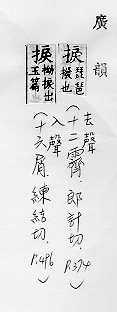 廣韻
捩 琵琶撥也
去聲(十二霽、郎計切 P.374)
捩 拗捩出玉篇
入聲(十六屑、練結切 P.496)